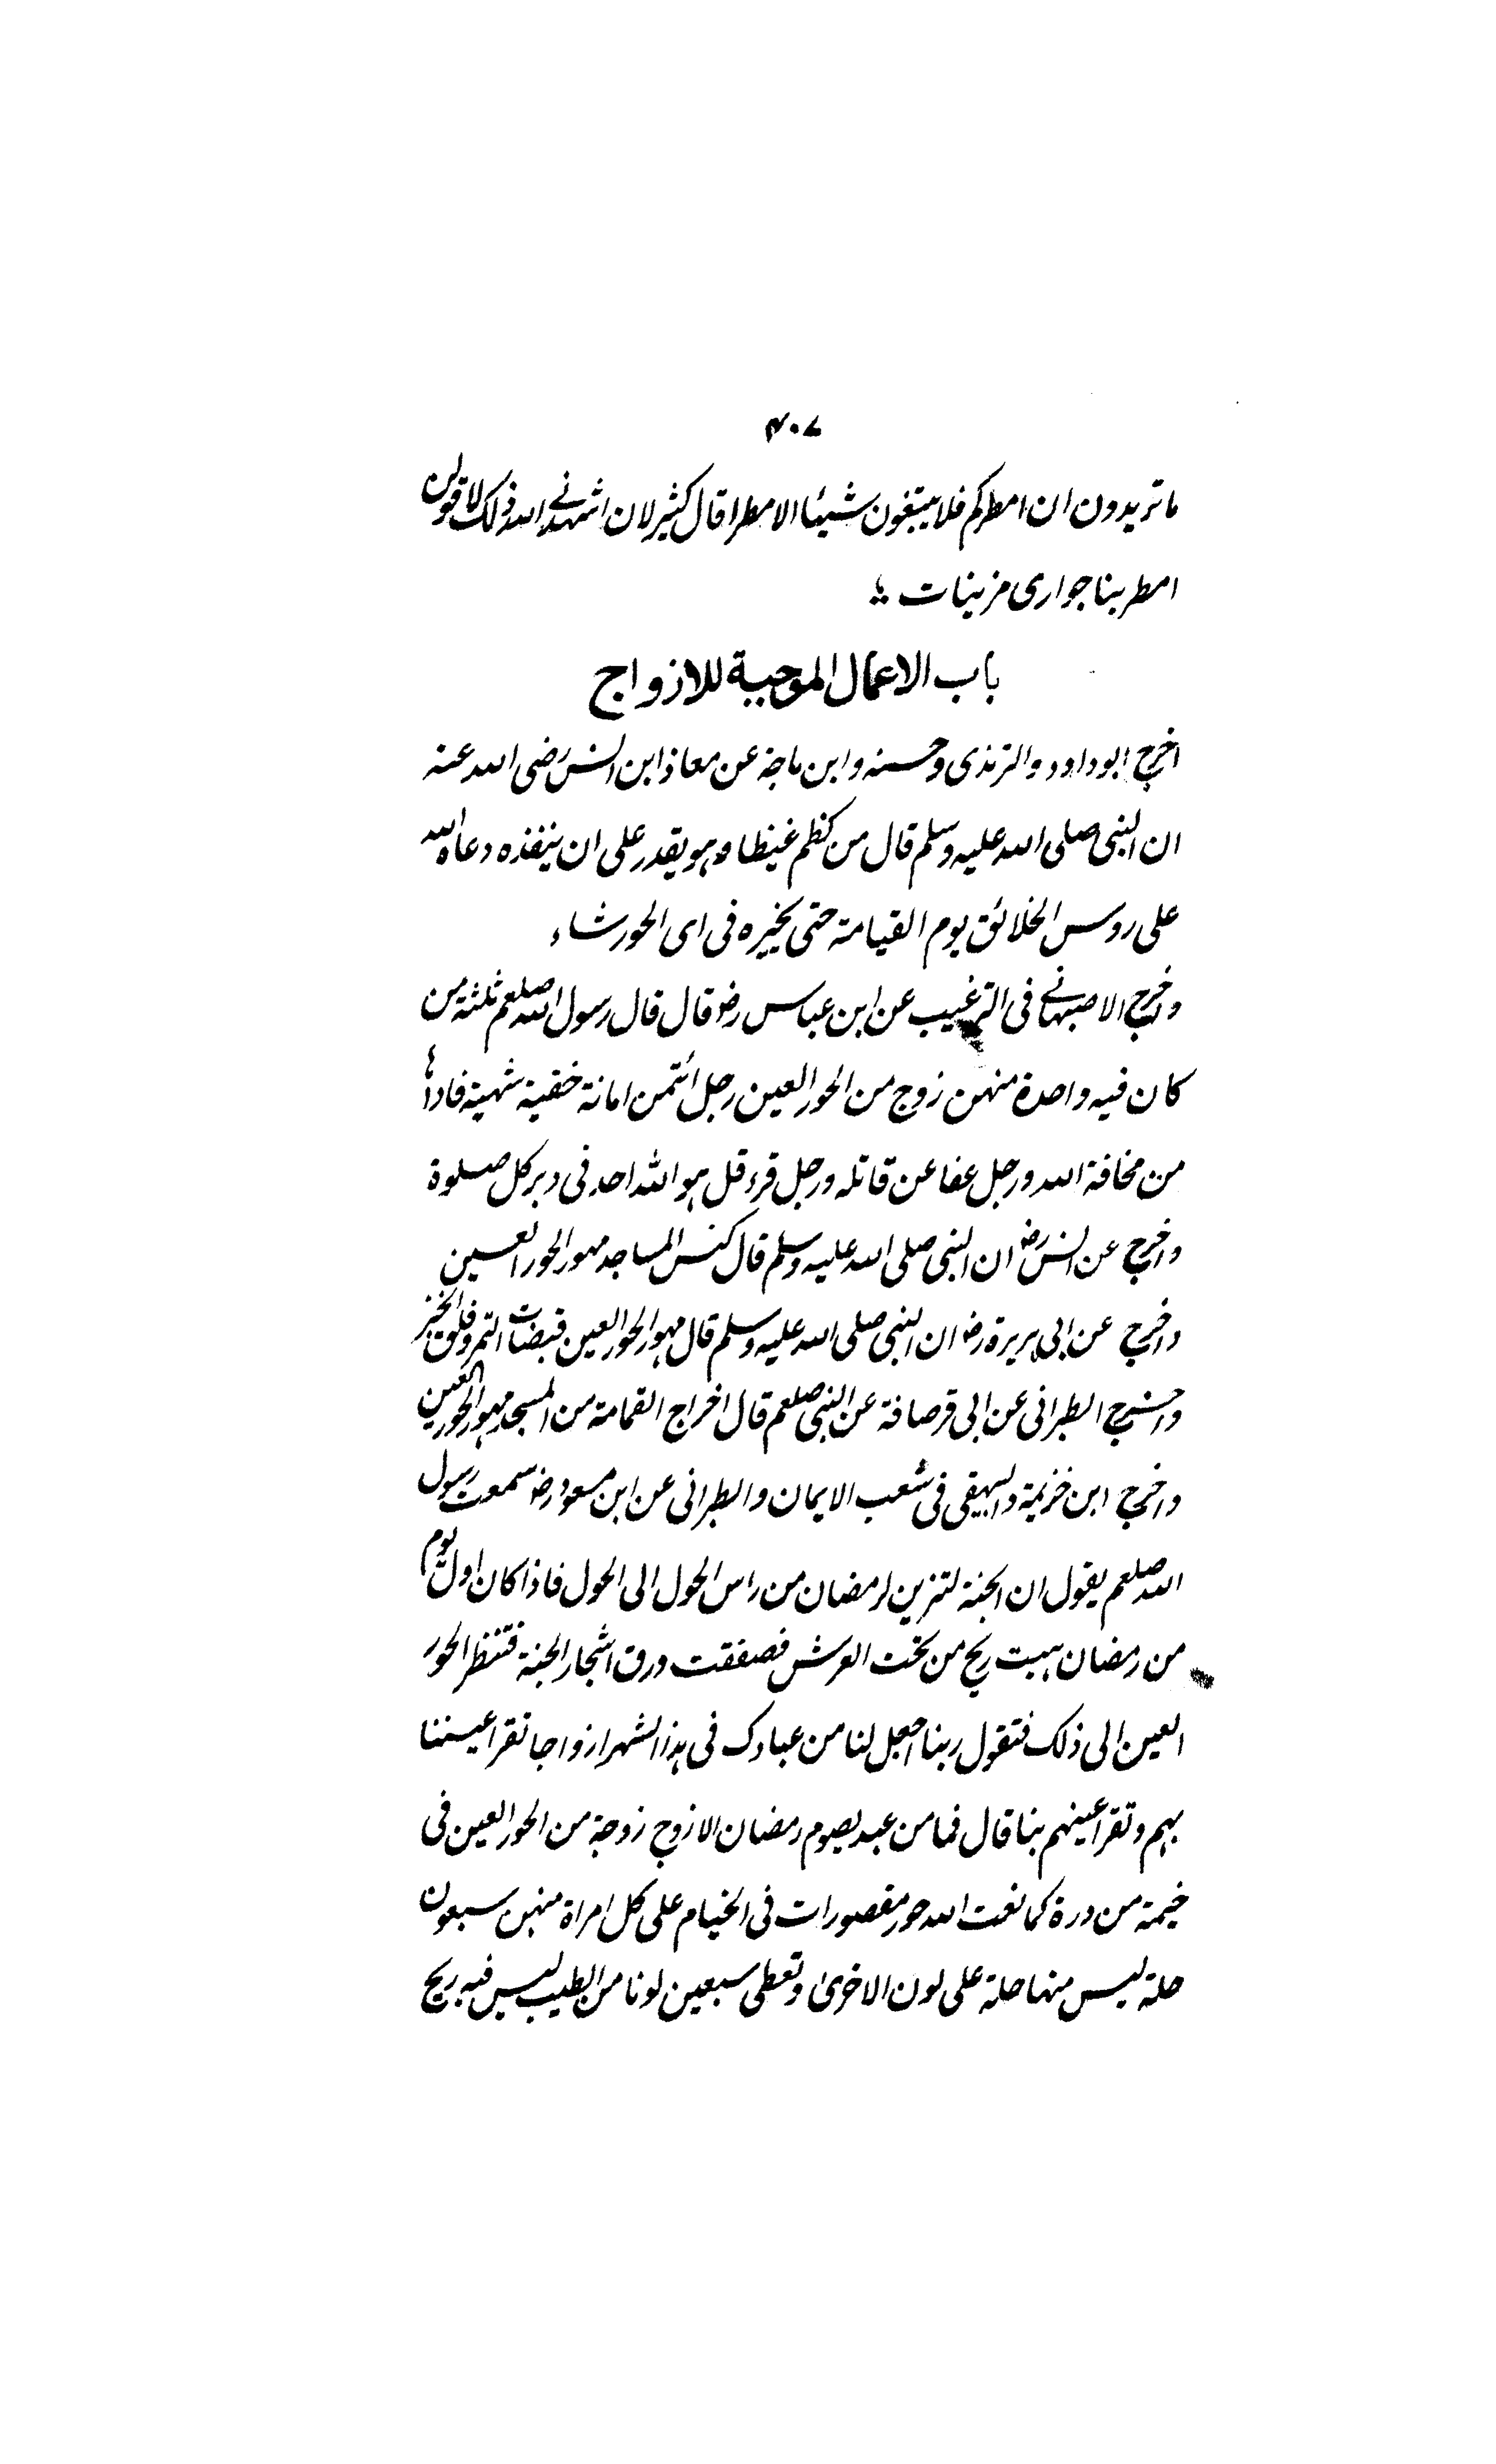 ۴۰۷
ما تریدون ان امطرکم فلا یبتغون شیئا الا مطرا قال کثیر لان اشهدنے الله ذلک لاقولن
امطر بنا جواری مزینات ؞
باب الاعمال الموجبة للازواج
اخرج ابو داود والترمذی وحسنه وابن ماجة عن معاذ ابن انس رضی الله عنه
ان النبی صلی الله علیه وسلم قال من کظم غیظا وهو یقدر علی ان ینفذه دعاه الله
علی روس الخلائق یوم القیامة حتی یخیره فی ای الحور شاء
واخرج الاصبهانے فی الترغیب عن ابن عباس رض قال قال رسول الله صلعم ثلثة من
کان فیه واحدة منهن زوج من الحور العین رجل ائتمن امانة خفیة شهیة فاداها
من مخافة الله ورجل عفا عن قاتله ورجل قرء قل هو الله احد فی دبر کل صلوة
واخرج عن انس رض ان النبی صلی الله علیه وسلم قال کنس المساجد مهور الحور العین
واخرج عن ابی هریرة رض ان النبی صلی الله علیه وسلم قال مهور الحور العین قبضات التمر وفلق الخبز
واخرج الطبرانی عن ابی قرصافة عن النبی صلعم قال اخراج القمامة من المسجد مهور الحور العین
واخرج ابن خزیمة والبیهقی فی شعب الایمان والطبرانی عن ابن مسعود رض سمعت رسول
الله صلعم یقول ان الجنة لتزین لرمضان من راس الحول الی الحول فاذا کان اول یوم
من رمضان هبت ریح من تحت العرش فصفقت ورق اشجار الجنة فتنظر الحور
العین الی ذلک فتقول ربنا اجعل لنا من عبادک فی هذا الشهر ازواجا تقر اعیننا
بهم وتقر اعینهم بنا قال فما من عبد یصوم رمضان الا زوج زوجة من الحور العین فی
خیمة من درة کما نعت الله حور مقصورات فی الخیام علی کل امراة منهن سبعون
حلة لیس منها حلة علی لون الاخری وتعطی سبعین لونا من الطیب لیس فیه ریح